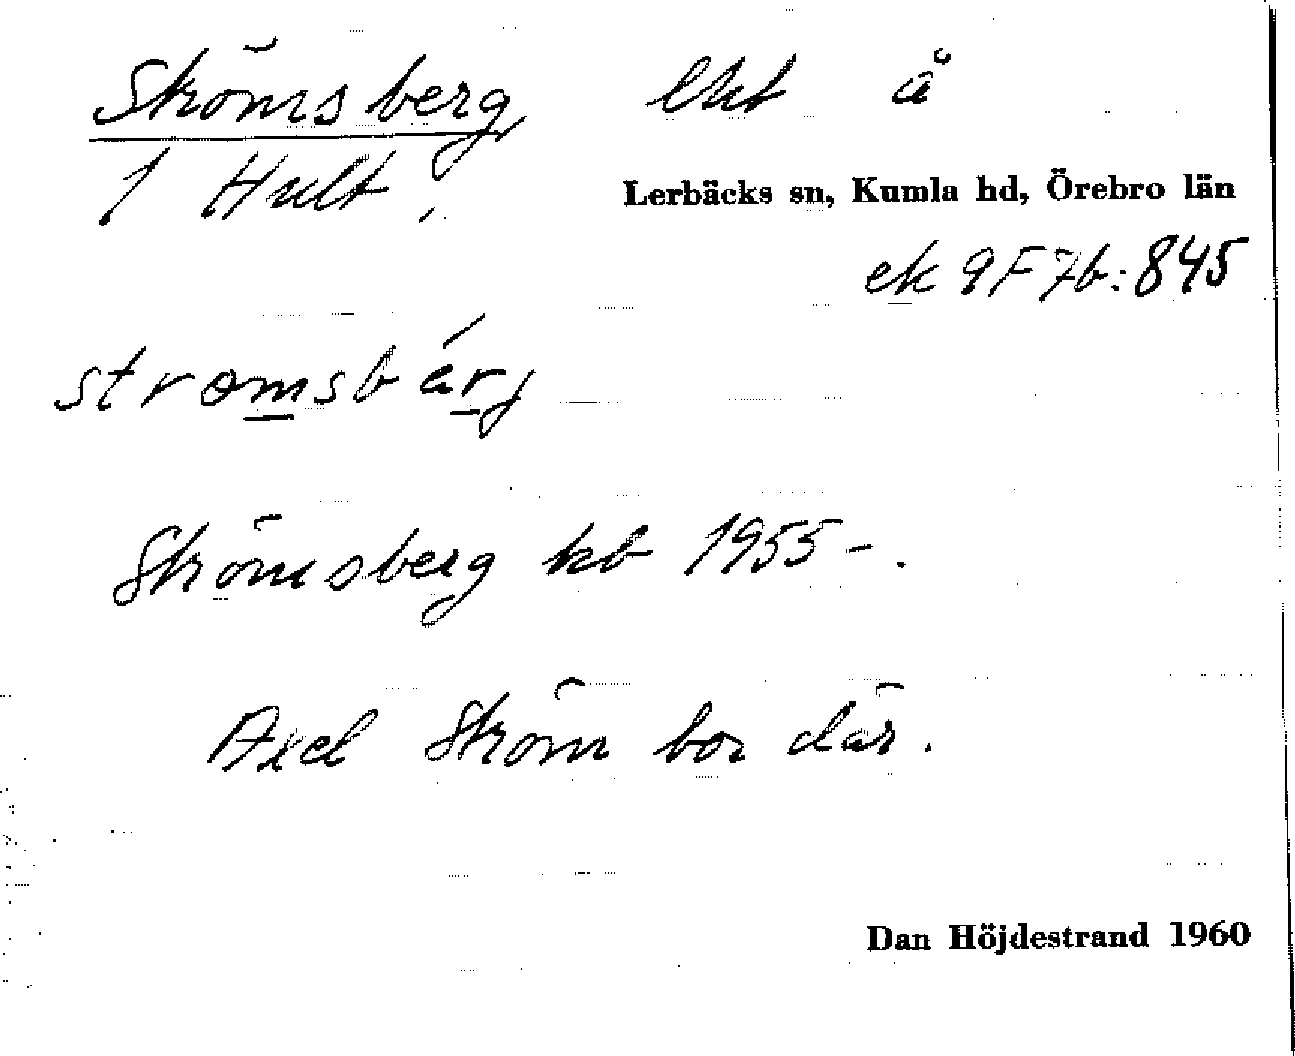 Strömsberg, lht å
1 Hult,
Lerbäcks sn, Kumla hd, Örebro län
ek 9F7b:845
stromsbárj
Strömsberg kb 1955-.
Axel Ström bor där.
Dan Höjdestrand 1960